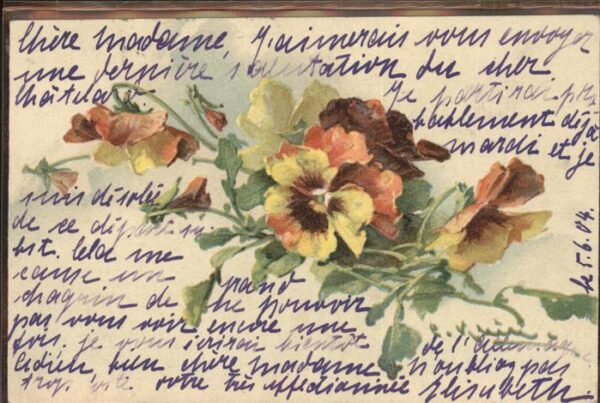 Chère madame, J'aimerais vous envoyer
une dernière salutation du cher
château. Je partirai pro-
bablement déjà
mardi et je
suis désolée
de ce départ su-
bit. Cela me
cause un grand
chagrin de ne pouvoir
pas vous voir encore une
fois. je vous écrirai bientôt de l'allemagne
Adieu bien chère madame n'oubliez pas
trop vite votre très affectionnée Elisabeth.
le 5.6.04.
C. Klein